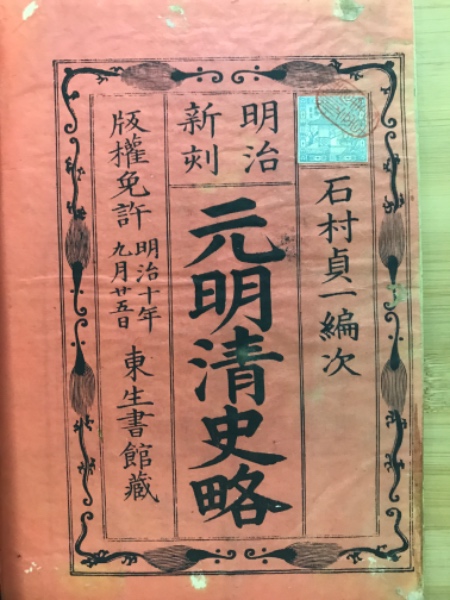 石村貞一編次
明治
新刻
元明清史略
版權免許
明治十年
九月廿五日
東生書館藏